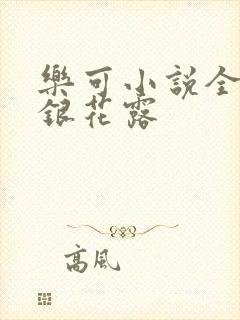 樂可小説全
銀花露
高風